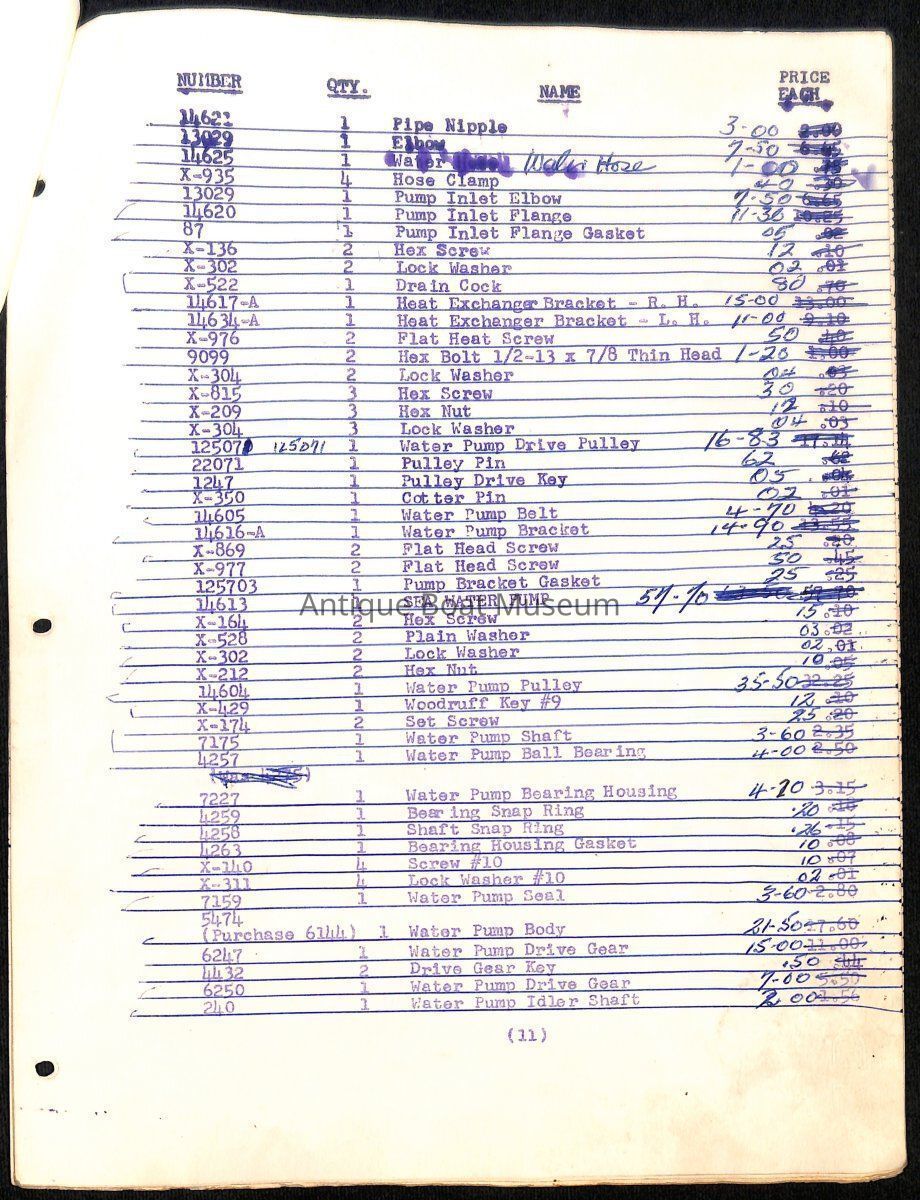 NUMBER QTY. NAME PRICE EACH
14621 1 Pipe Nipple 3-00 2.00
13029 1 Elbow 7-50 6.65
14625 1 Water Water Hose 1-00
X-935 4 Hose Clamp 40 .30
13029 1 Pump Inlet Elbow 7-50 6.65
14620 1 Pump Inlet Flange 11-36 10.25
87 1 Pump Inlet Flange Gasket 05 .02
X-136 2 Hex Screw 12 .10
X-302 2 Lock Washer 02 .01
X-522 1 Drain Cock 80 .70
14617-A 1 Heat Exchanger Bracket - R. H. 15-00 13.00
14634-A 1 Heat Exchanger Bracket - L. H. 11-00 9.10
X-976 2 Flat Heat Screw 50 .40
9099 2 Hex Bolt 1/2-13 x 7/8 Thin Head 1-20 1.00
X-304 2 Lock Washer 04 .03
X-815 3 Hex Screw 30 .20
X-209 3 Hex Nut 12 .10
X-304 3 Lock Washer 04 .03
125071 125071 1 Water Pump Drive Pulley 16-83 17.14
22071 1 Pulley Pin 62 .62
1247 1 Pulley Drive Key 05 .04
X-350 1 Cotter Pin 02 .01
14605 1 Water Pump Belt 4-70 4.20
14616-A 1 Water Pump Bracket 14-90 13.55
X-869 2 Flat Head Screw 25 .20
X-977 2 Flat Head Screw 50 .45
125703 1 Pump Bracket Gasket 25 .25
14613 1 SEA WATER PUMP 57-70 57.70
X-164 2 Hex Screw 15 .10
X-528 2 Plain Washer 03 .02
X-302 2 Lock Washer 02 .01
X-212 2 Hex Nut 10 .05
14604 1 Water Pump Pulley 35-50 32.25
X-429 1 Woodruff Key #9 12 .10
X-174 2 Set Screw 25 .20
7175 1 Water Pump Shaft 3-60 2.35
4257 1 Water Pump Ball Bearing 4-00 2.50
7227 1 Water Pump Bearing Housing 4-20 3.15
4259 1 Bearing Snap Ring .20 .18
4258 1 Shaft Snap Ring .26 .15
4263 1 Bearing Housing Gasket 10 .08
X-140 4 Screw #10 10 .07
X-311 4 Lock Washer #10 02 .01
7159 1 Water Pump Seal 3-60 2.80
5474
(Purchase 6144) 1 Water Pump Body 21-50 17.60
6247 1 Water Pump Drive Gear 15-00 11.00
4432 2 Drive Gear Key .50 .44
6250 1 Water Pump Drive Gear 7-00 5.55
240 1 Water Pump Idler Shaft 2 00 1.56
(11)
Antique Boat Museum